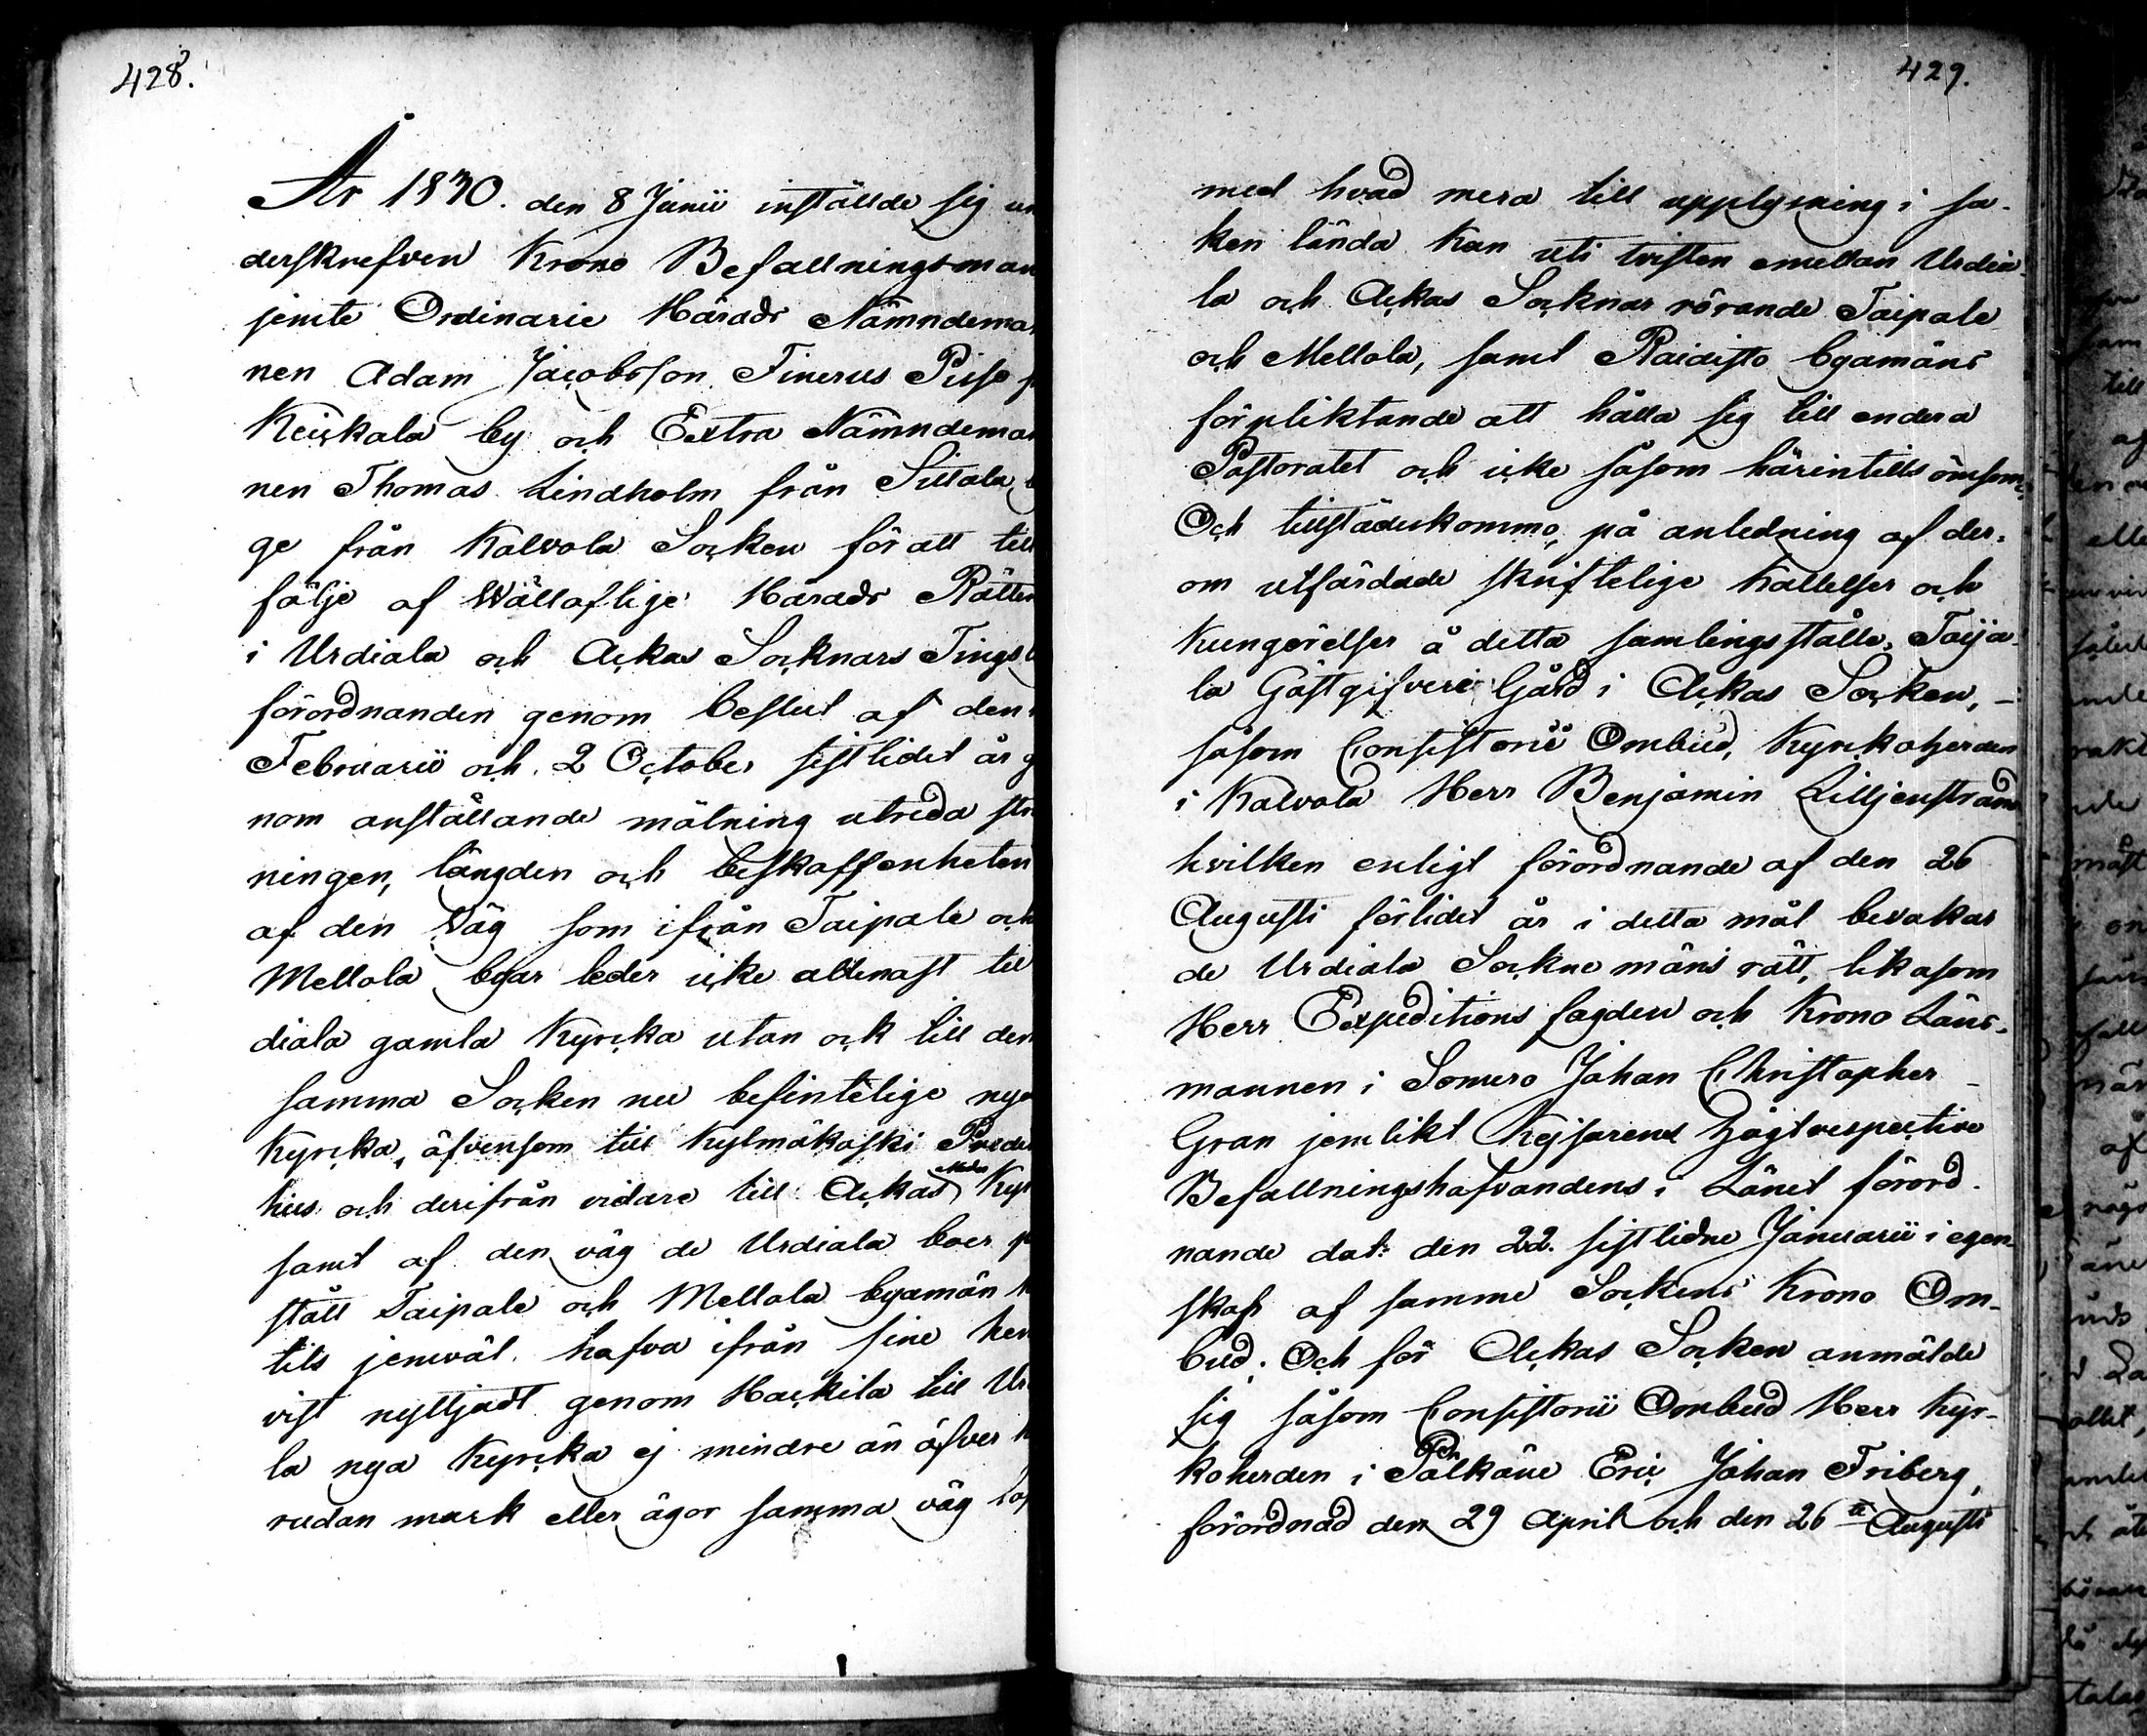 428.
År 1830. den 8 Junii inställde sig un
derskrefven Krono Befallningsman
jemte Ordinarie Härads Nämndema
nen Adam Jacobsson Finerus Piiso
Keickala by och Extra Nämndeman
nen Thomas Lindholm från Sittala
ge från Kalvola Socken för att till
följe af Wällaflige Härads Rätten
i Urdiala och Ackas Socknars Tings
förordnanden genom beslut af den
Februarii och 2 October sistlidit år g
nom anställande mätning utreda str
ningen, längden och beskaffenheten
af den Väg som ifrån Taipale och
Mellola byar leder icke allenast till
diala gamla Kyrcka utan ock till den
samma Socken nu befintelige nya
Kyrcka, äfvensom till Kylmäkoski Predi
hus och derifrån vidare till Ackas Kyr
samt af den väg de Urdiala boer
stält Taipale och Mellola byamän
tils jemväl hafva ifrån sine hem
vist nyttjadt genom Hackila till Ur
la nya Kyrcka ej mindre än öfver
rudan mark eller ägor samma väg löp
429.
med hvad mera till upplysning i sa-
ken lända kan uti tvisten emellan Urdia-
la och Ackas Socknar rörande Taipale
och Mellola, samt Raidisto byamäns
förpliktande att hålla sig till endera
Pastoratet och icke såsom härintills ömsom,
Och tillstädeskommo, på anledning af der-
om utfärdade skriftelige Kallelser och
Kungörelser å detta samlingsställe, Toija-
la Gästgifveri Gård i Ackas Socken, –
såsom Consistorii Ombud, Kyrckoherden
i Kalvola Herr Benjamin Lilljenstrand
hvilken enligt förordnande af den 26
Augusti förlidet år i detta mål bevakar
de Urdiala Sockne mäns rätt, likasom
Herr Expeditions fogden och Krono Läns-
mannen i Somero Johan Christopher –
Gran jemlikt Kejserens Högtrespective
Befallningshafvandens i Länet förord-
nande dat: den 22. sistlidne Januarii i egen-
skap af samme Sockens Krono Om-
bud. Och för Ackas Socken anmälde
sig såsom Consistorii Ombud Herr Kyr-
koherden i Pälkäne Eric Johan Friberg,
förordnad den 29 April och den 26 Augusti